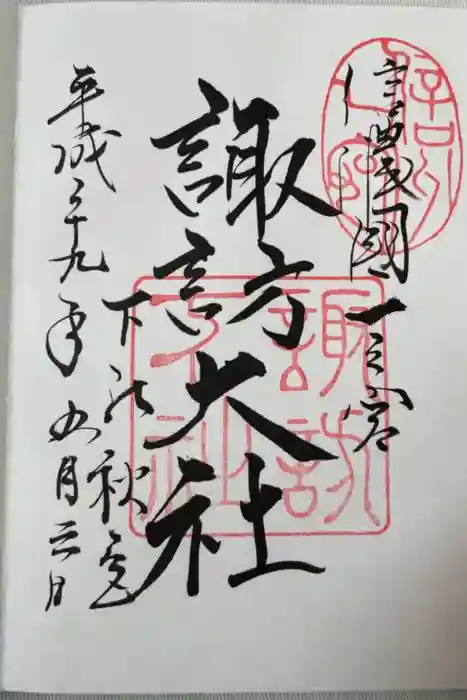 信濃國一之宮
諏訪大社
下社秋宮
平成二十九年五月三日
諏訪
下社